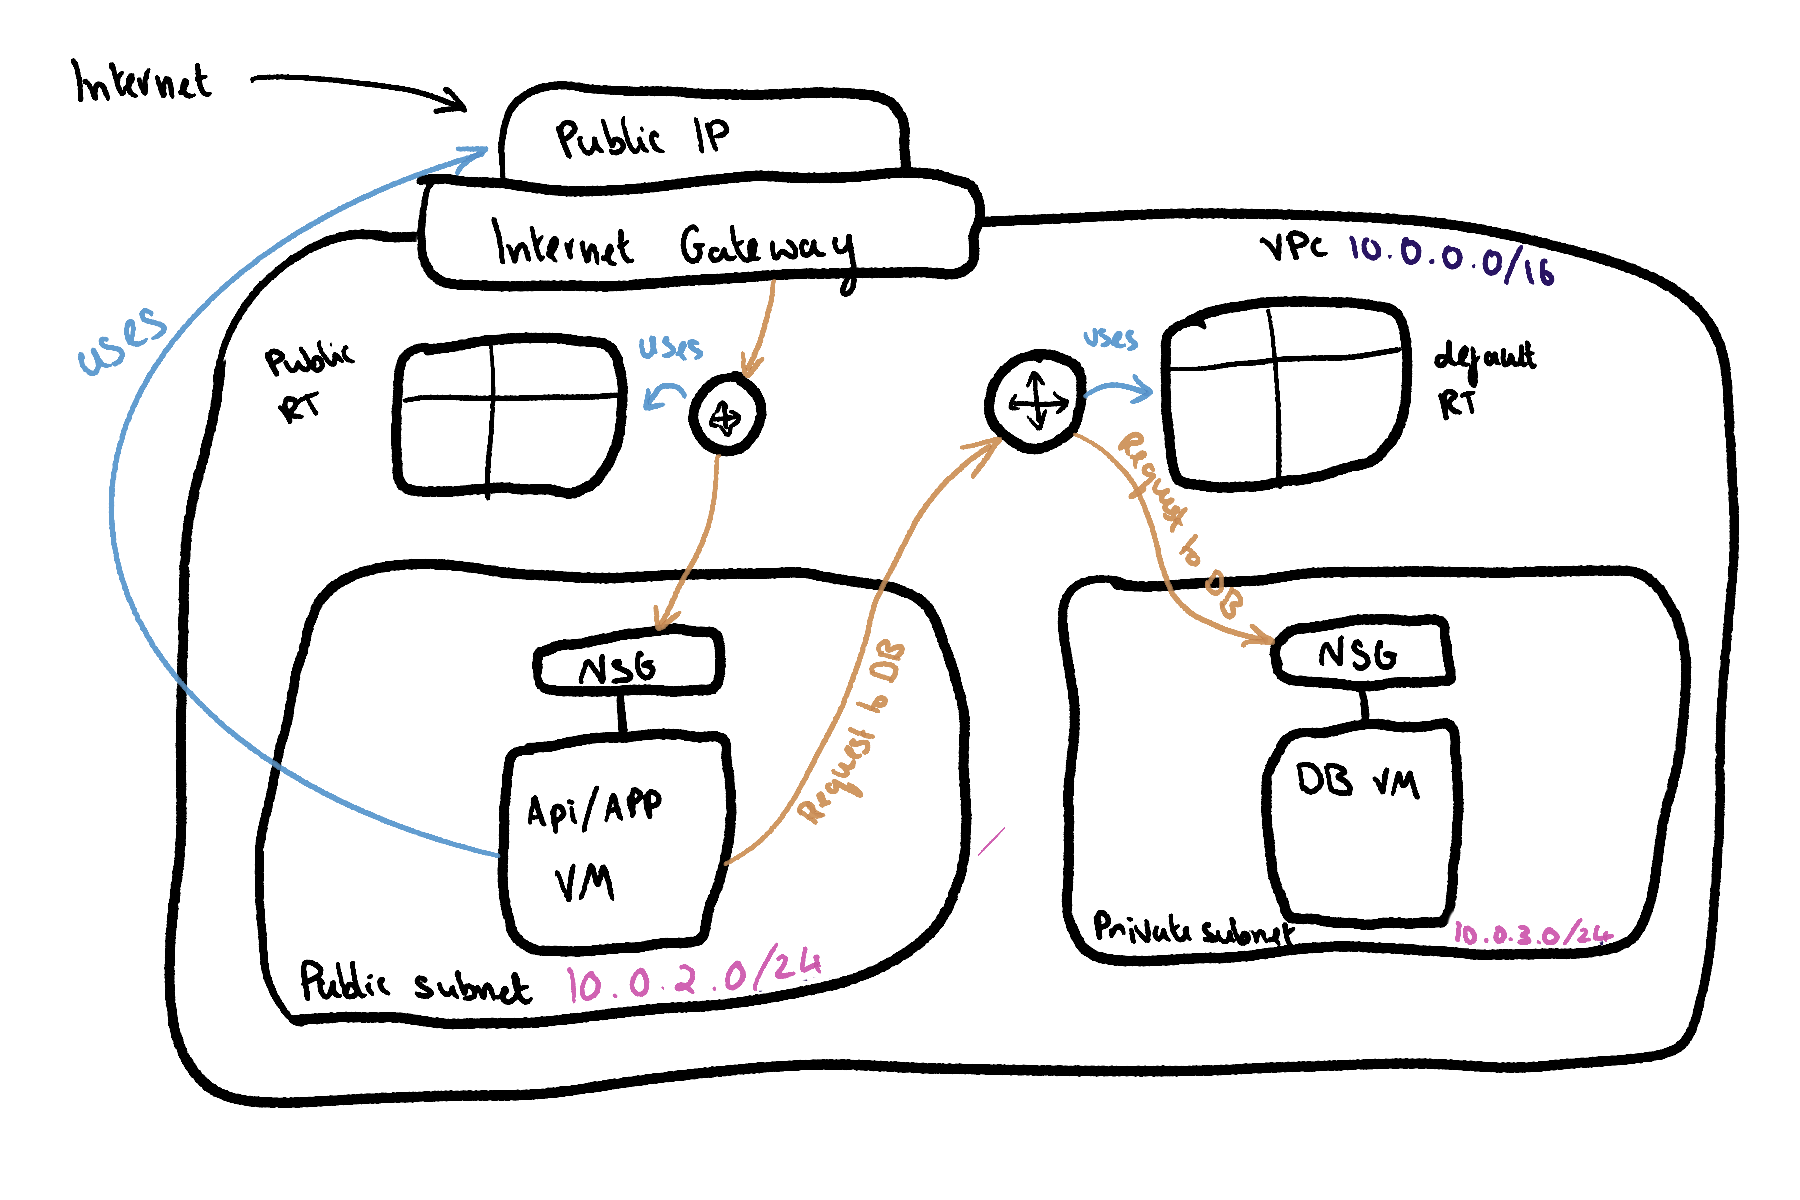 Internet
Public IP
Internet Gateway
VPC 10.0.0.0/16
uses
Public
RT
uses
uses
default
RT
Request to DB
Request to DB
NSG
Api/APP
VM
Public subnet 10.0.2.0/24
NSG
DB VM
Private subnet 10.0.3.0/24